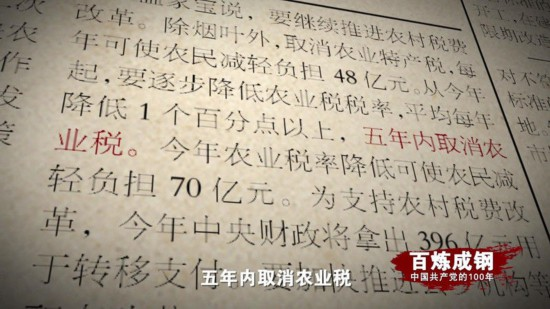 温家宝说，要继续推进农村税费
改革。除烟叶外，取消农业特产税，每
年可使农民减轻负担48亿元。从今年
起，要逐步降低农业税税率，平均每年
降低1个百分点以上，五年内取消农
业税。今年农业税率降低可使农民减
轻负担70亿元。为支持农村税费改
革，今年中央财政将拿出396亿元用
于转移支付。要加快推进
机构等
五年内取消农业税
百炼成钢
中国共产党的100年